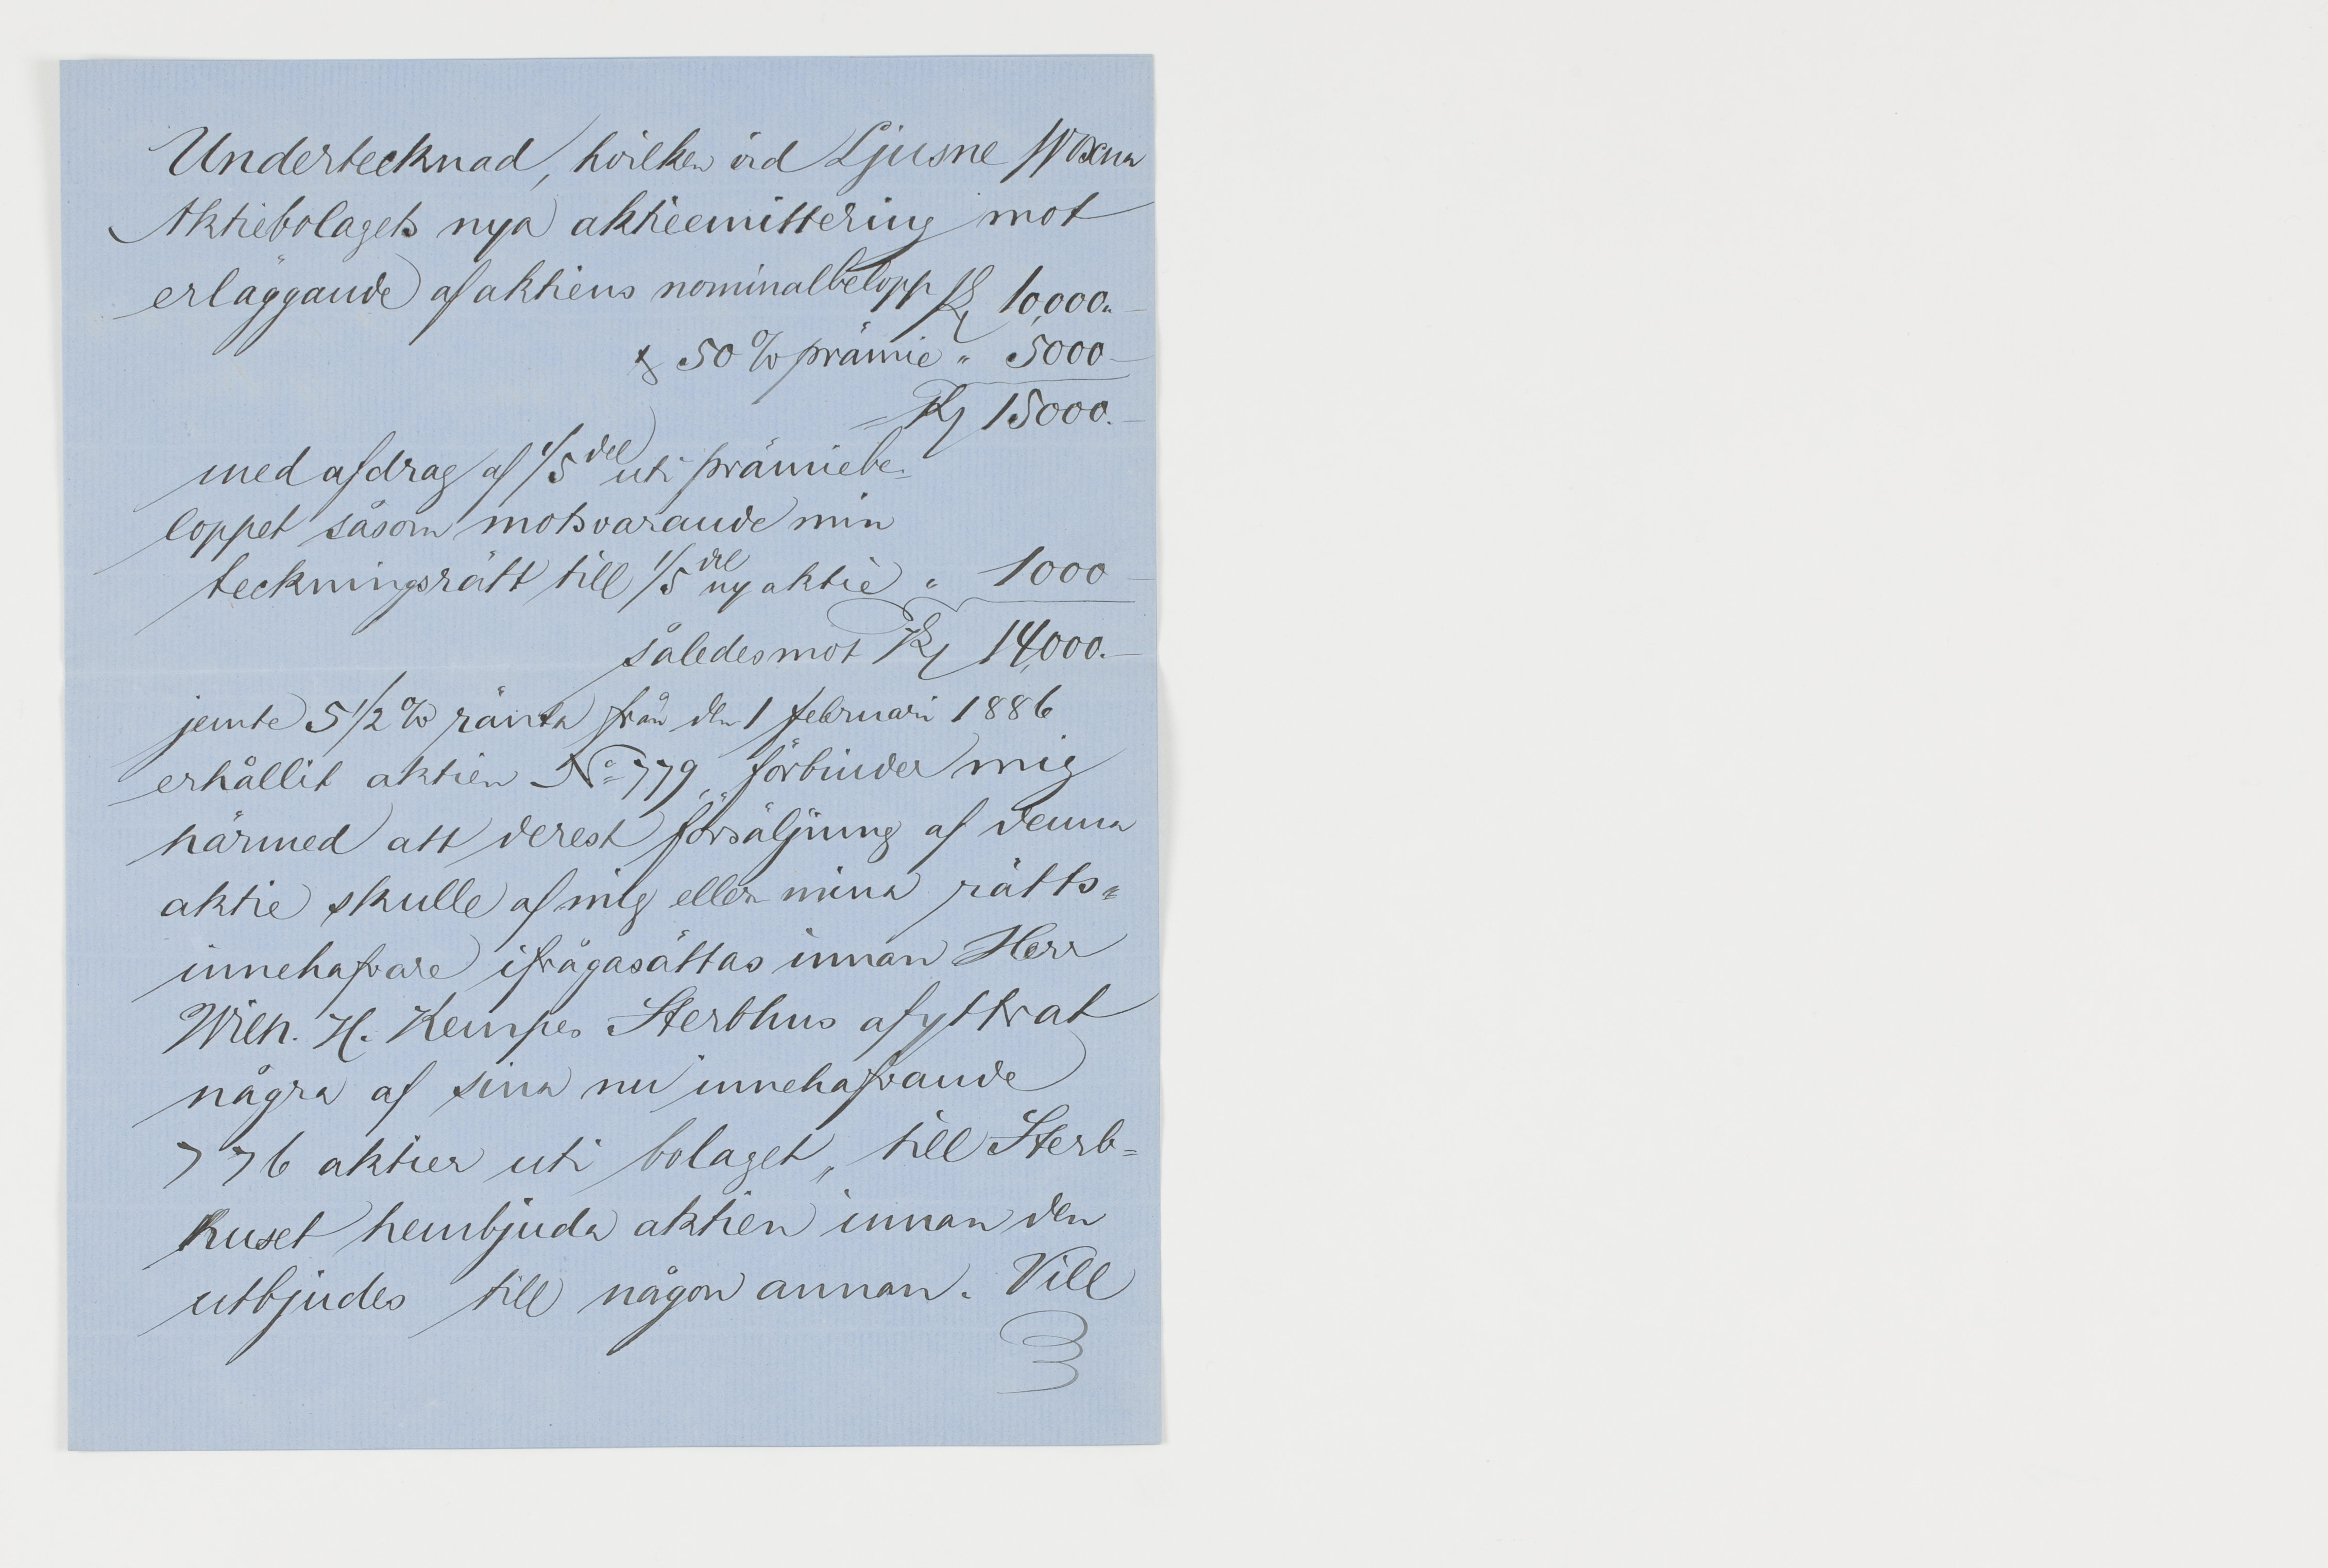 Undertecknad, hvilken vid Ljusne Woxna
Aktiebolagets nya aktieemittering mot
erläggande af aktiens nominalbelopp Kr 10,000.-
& 50% prämie " 5000-
= Kr 15000.-
med afdrag af 1/5 del uti prämiebe-
loppet såsom motsvarande min
teckningsrätt till 1/5 del ny aktie " 1000-
således mot Kr 14,000.-
jemte 5 1/2 % ränta från den 1 februari 1886
erhållit aktien No 779, förbinder mig
härmed att derest försäljning af denna
aktie skulle af mig eller mina rätts=
innehafvare ifrågasättas innan Herr
Wilh. H. Kempes Sterbhus afyttrat
några af sina nu innehafvande
776 aktier uti bolaget, till Sterb=
huset hembjuda aktien innan den
utbjudes till någon annan. Vill